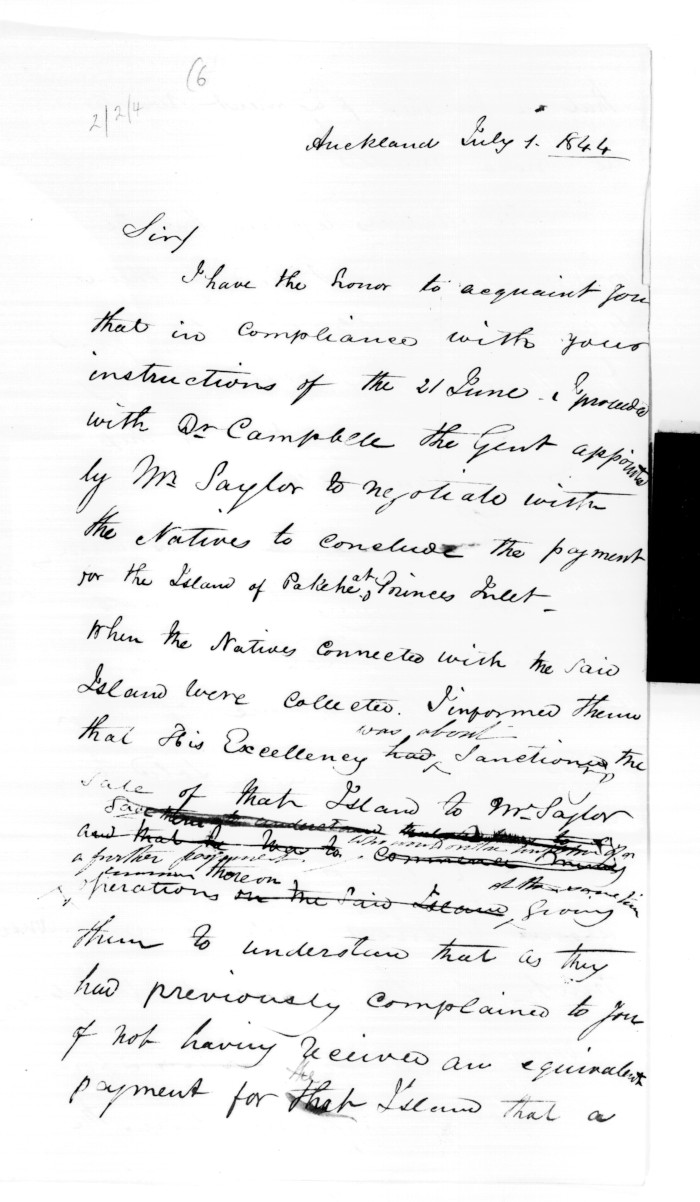 (6
2/2/4
Auckland July 1. 1844
Sir/
I have the honor to acquaint you
that in compliance with your
instructions of the 21 June. I proceeded
with Dr Campbell the Gent appointed
by Mr Taylor to negotiate with
the Natives to conclude the payment
for the Island of Pakihe at Princes Inlet_
When the Natives connected with the said
Island were collected. I informed them
was about
that His Excellency had sanctioned the
sale of that Island to Mr Taylor
gave them to understand
and that he was to commence mining
a further payment.
thereon at the same time
operations on the said Island, giving
them to understand that as they
had previously complained to you
of not having received an equivalent
the
payment for that Island that a